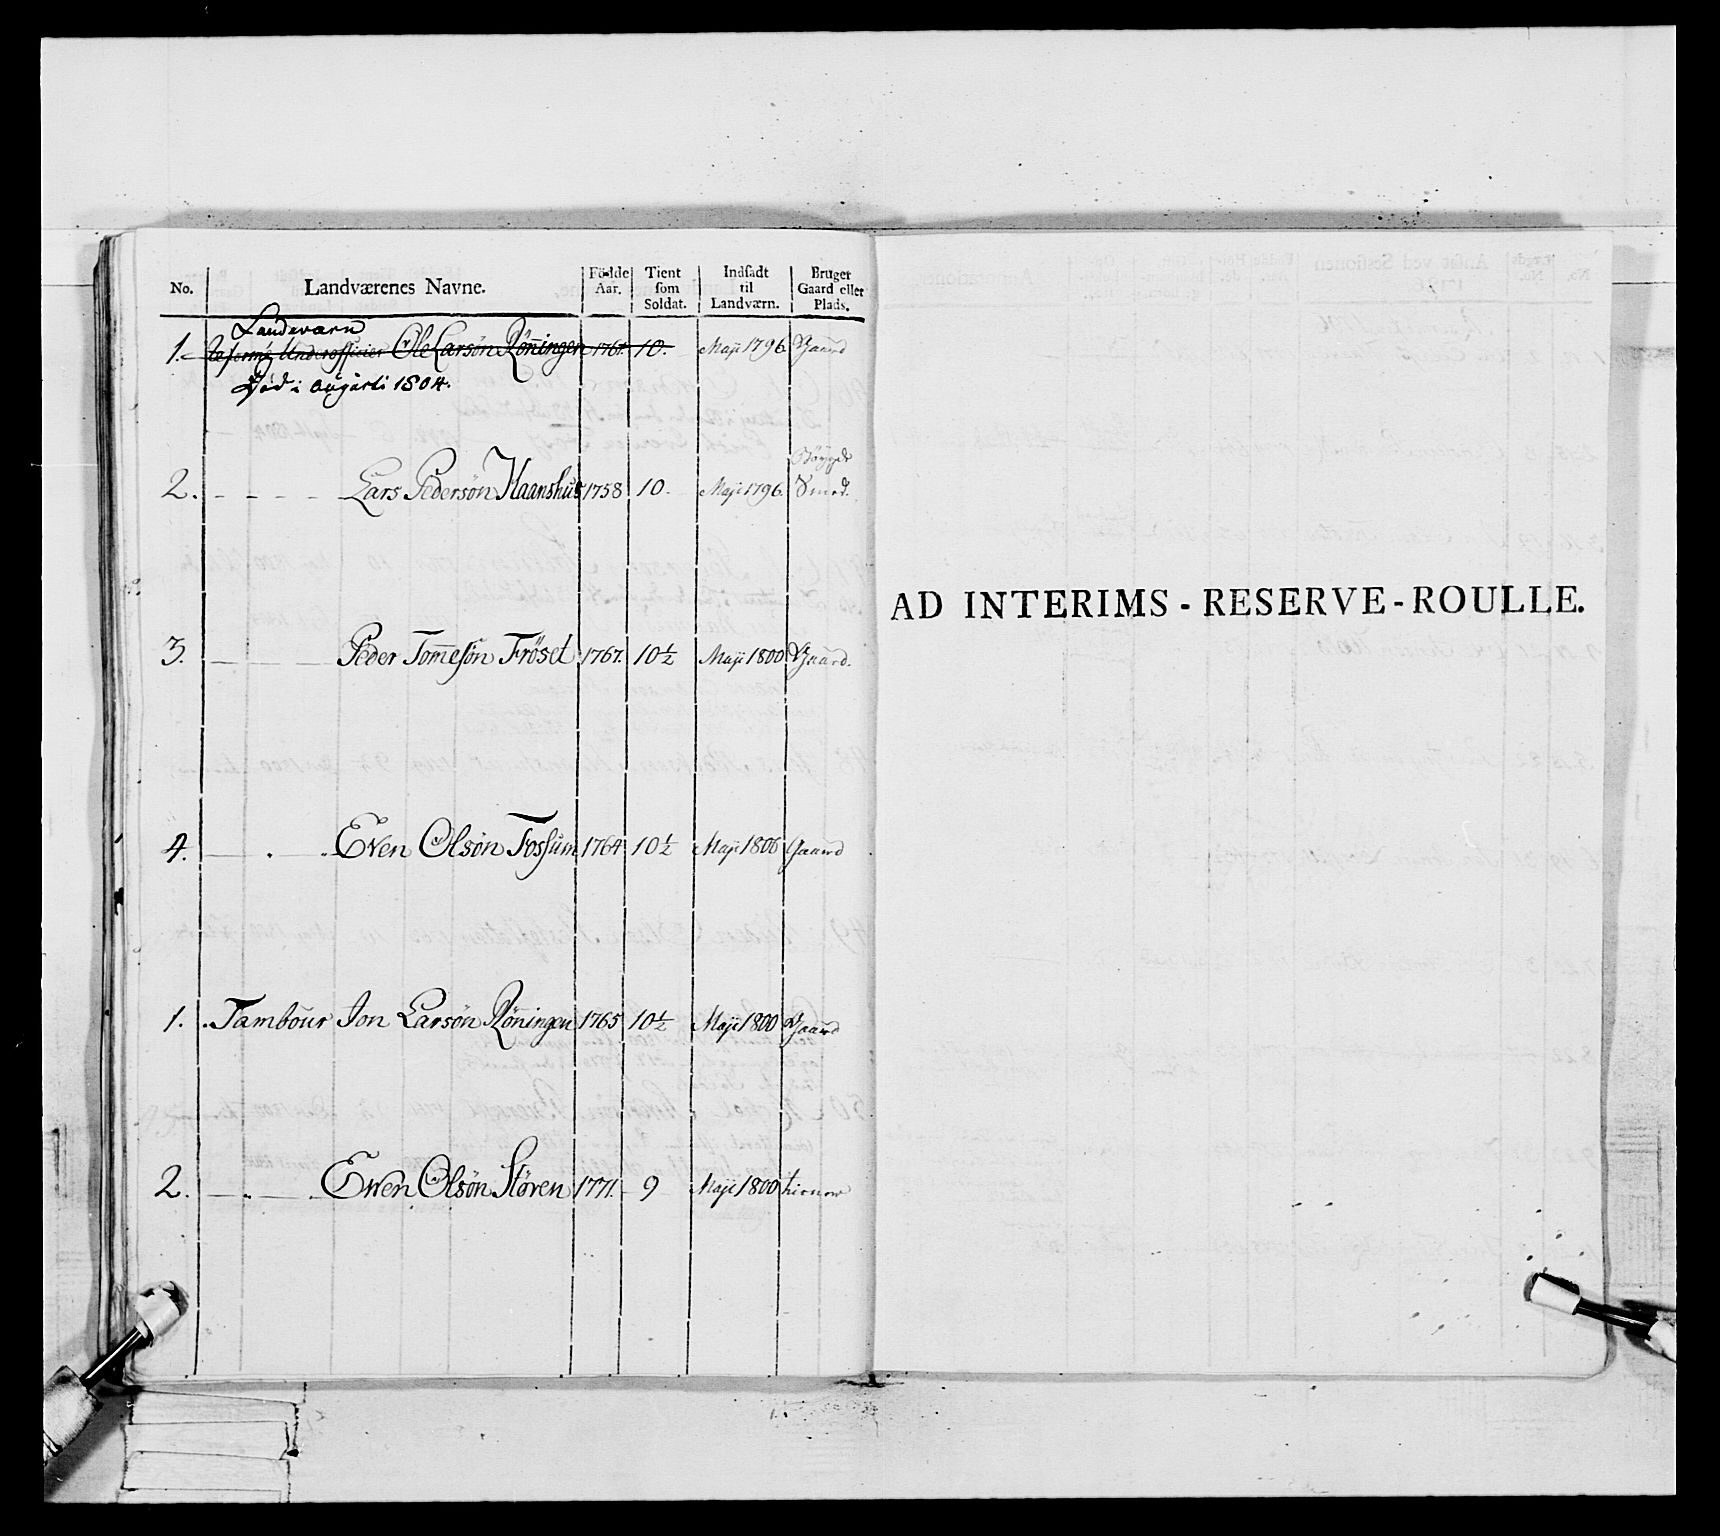 No. Landværenes Navne. Födde Aar. Tient som Soldat. Indsadt til Landværn. Bruger Gaard eller Plads.
Landeværn
1. Underofficier Ole Larsön Röningen 1761. 10. Maji 1796 Gaard
Död i augusti 1804.
Böygde
2. - - - - Lars Pedersön Haanshus 1758 10. Maji 1796. Smed.
3. - - - Peder Tomesön Fröset 1767. 10½ Maji 1800 Gaard.
4. - - - Even Olsön Fossum 1764 10½ Maji 1800 Gaard
1. Tambour Jon Larsön Röningen 1765 10½ Maji 1800 Gaard
2. - - - Even Olsön Stören 1771. 9 Maji 1800
AD INTERIMS - RESERVE - ROULLE.